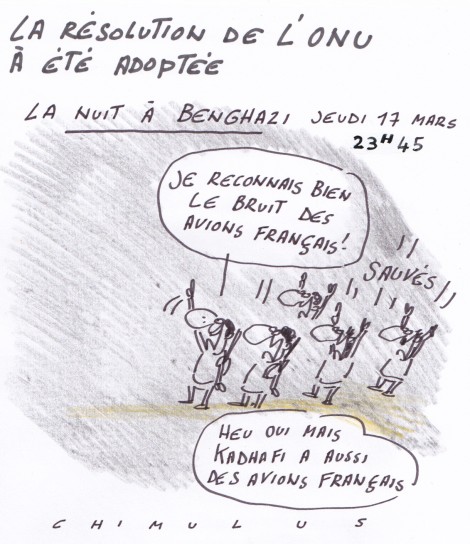 LA RÉSOLUTION DE L'ONU
À ÉTÉ ADOPTÉE
LA NUIT À BENGHAZI JEUDI 17 MARS
23H45
JE RECONNAIS BIEN
LE BRUIT DES
AVIONS FRANÇAIS!
SAUVÉS
HEU OUI MAIS
KADHAFI A AUSSI
DES AVIONS FRANÇAIS
CHIMULUS